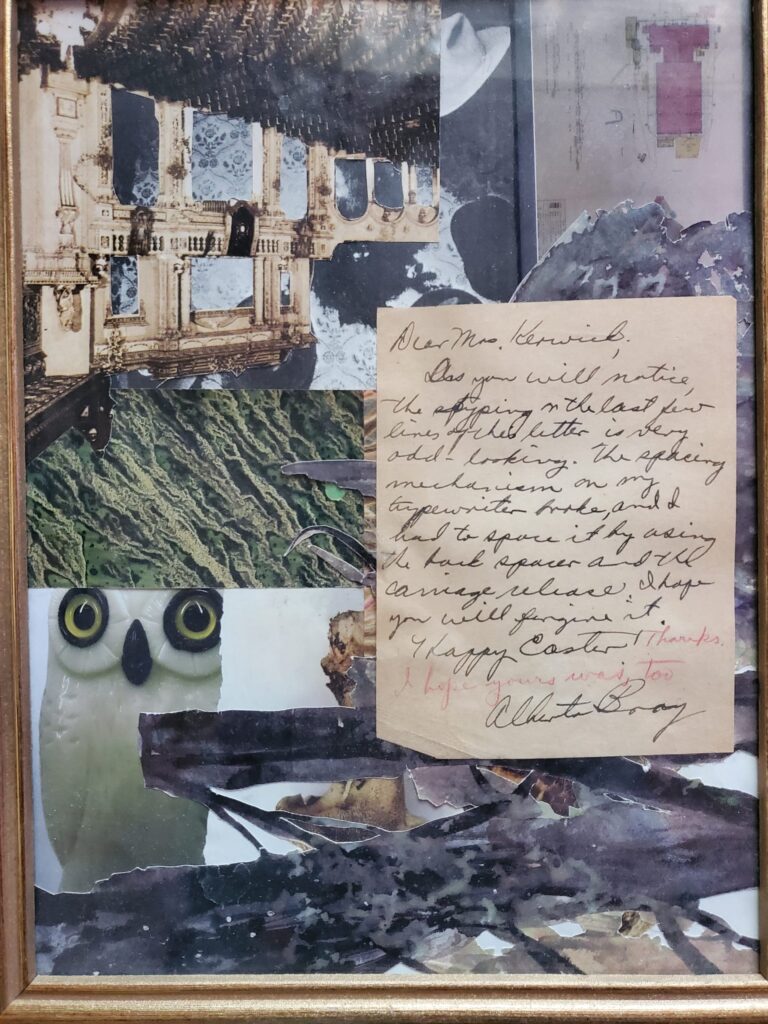 Dear Mrs. Kerwick,
As you will notice,
the typing in the last few
lines of this letter is very
odd-looking. The spacing
mechanism on my
typewriter broke, and I
had to space it by using
the back spacer and the
carriage release. I hope
you will forgive it.
Happy Easter! Thanks.
I hope yours was, too
Alberta Bray